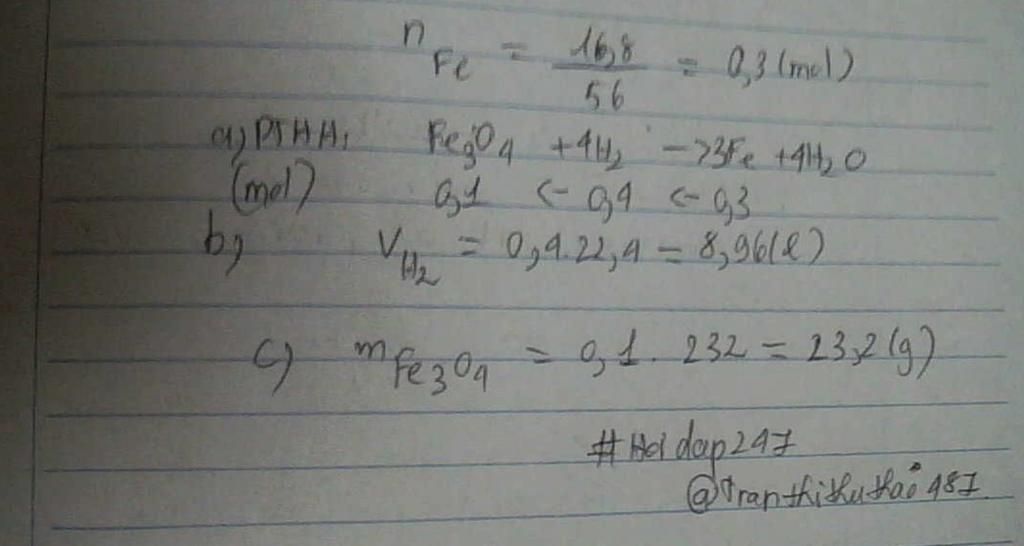 n Fe = 16,8 / 56 = 0,3 (mol)
a, PTHH: Fe3O4 + 4H2 -> 3Fe + 4H2O
(mol) 0,1 <- 0,4 <- 0,3
b, V H2 = 0,4.22,4 = 8,96(l)
c) m Fe3O4 = 0,1. 232 = 23,2(g)
#Hoidap247
@tranthithuthao487